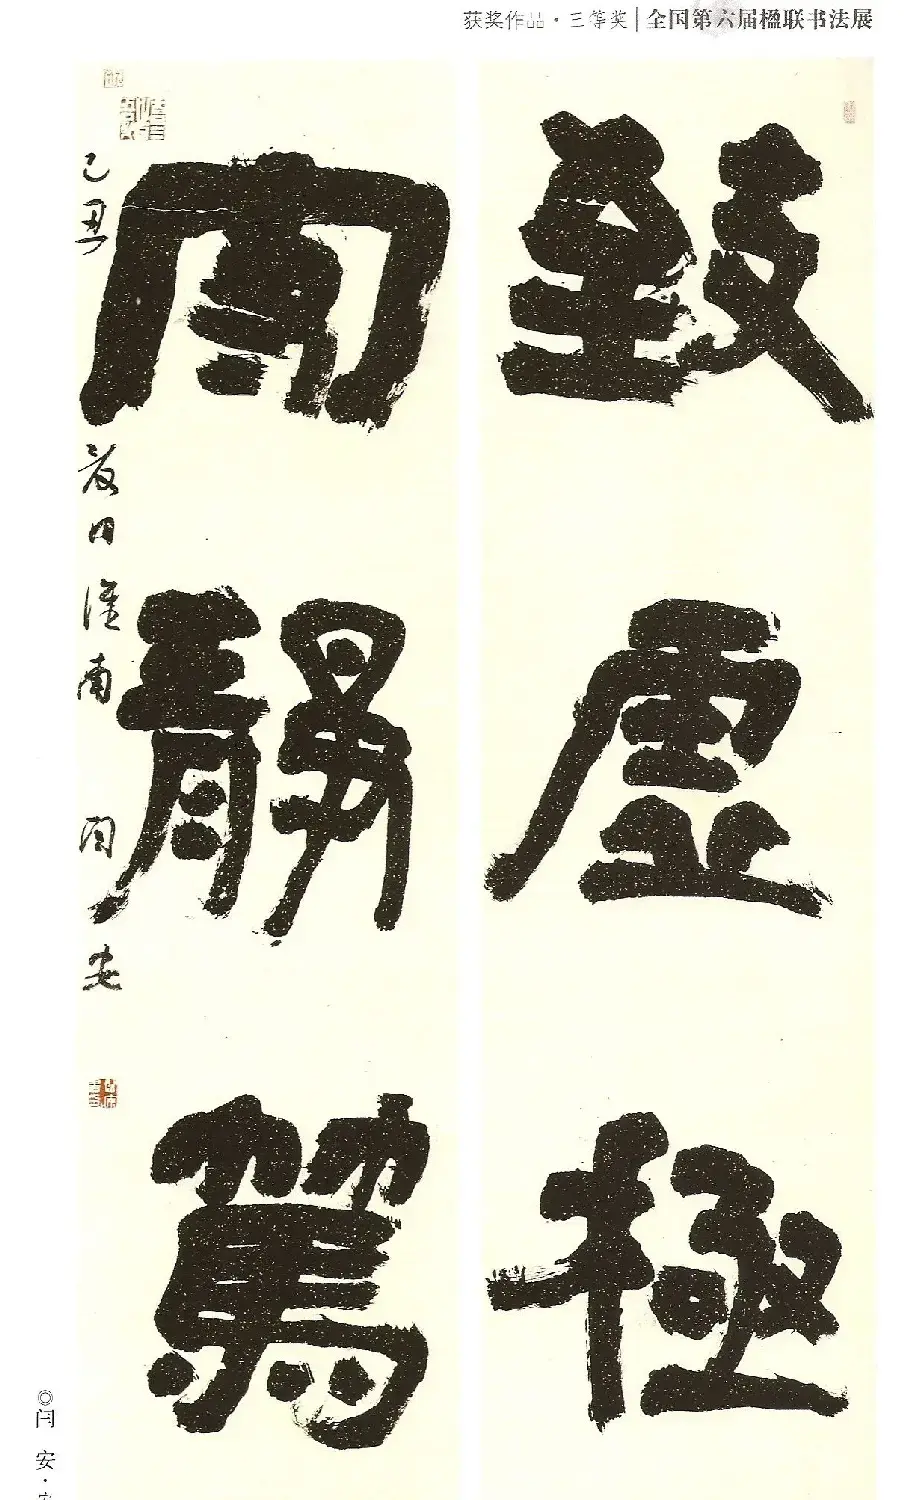 获奖作品·三等奖|全国第六届楹联书法展
致虛極
守靜篤
己丑夏日淮南 闫安
◎闫 安·